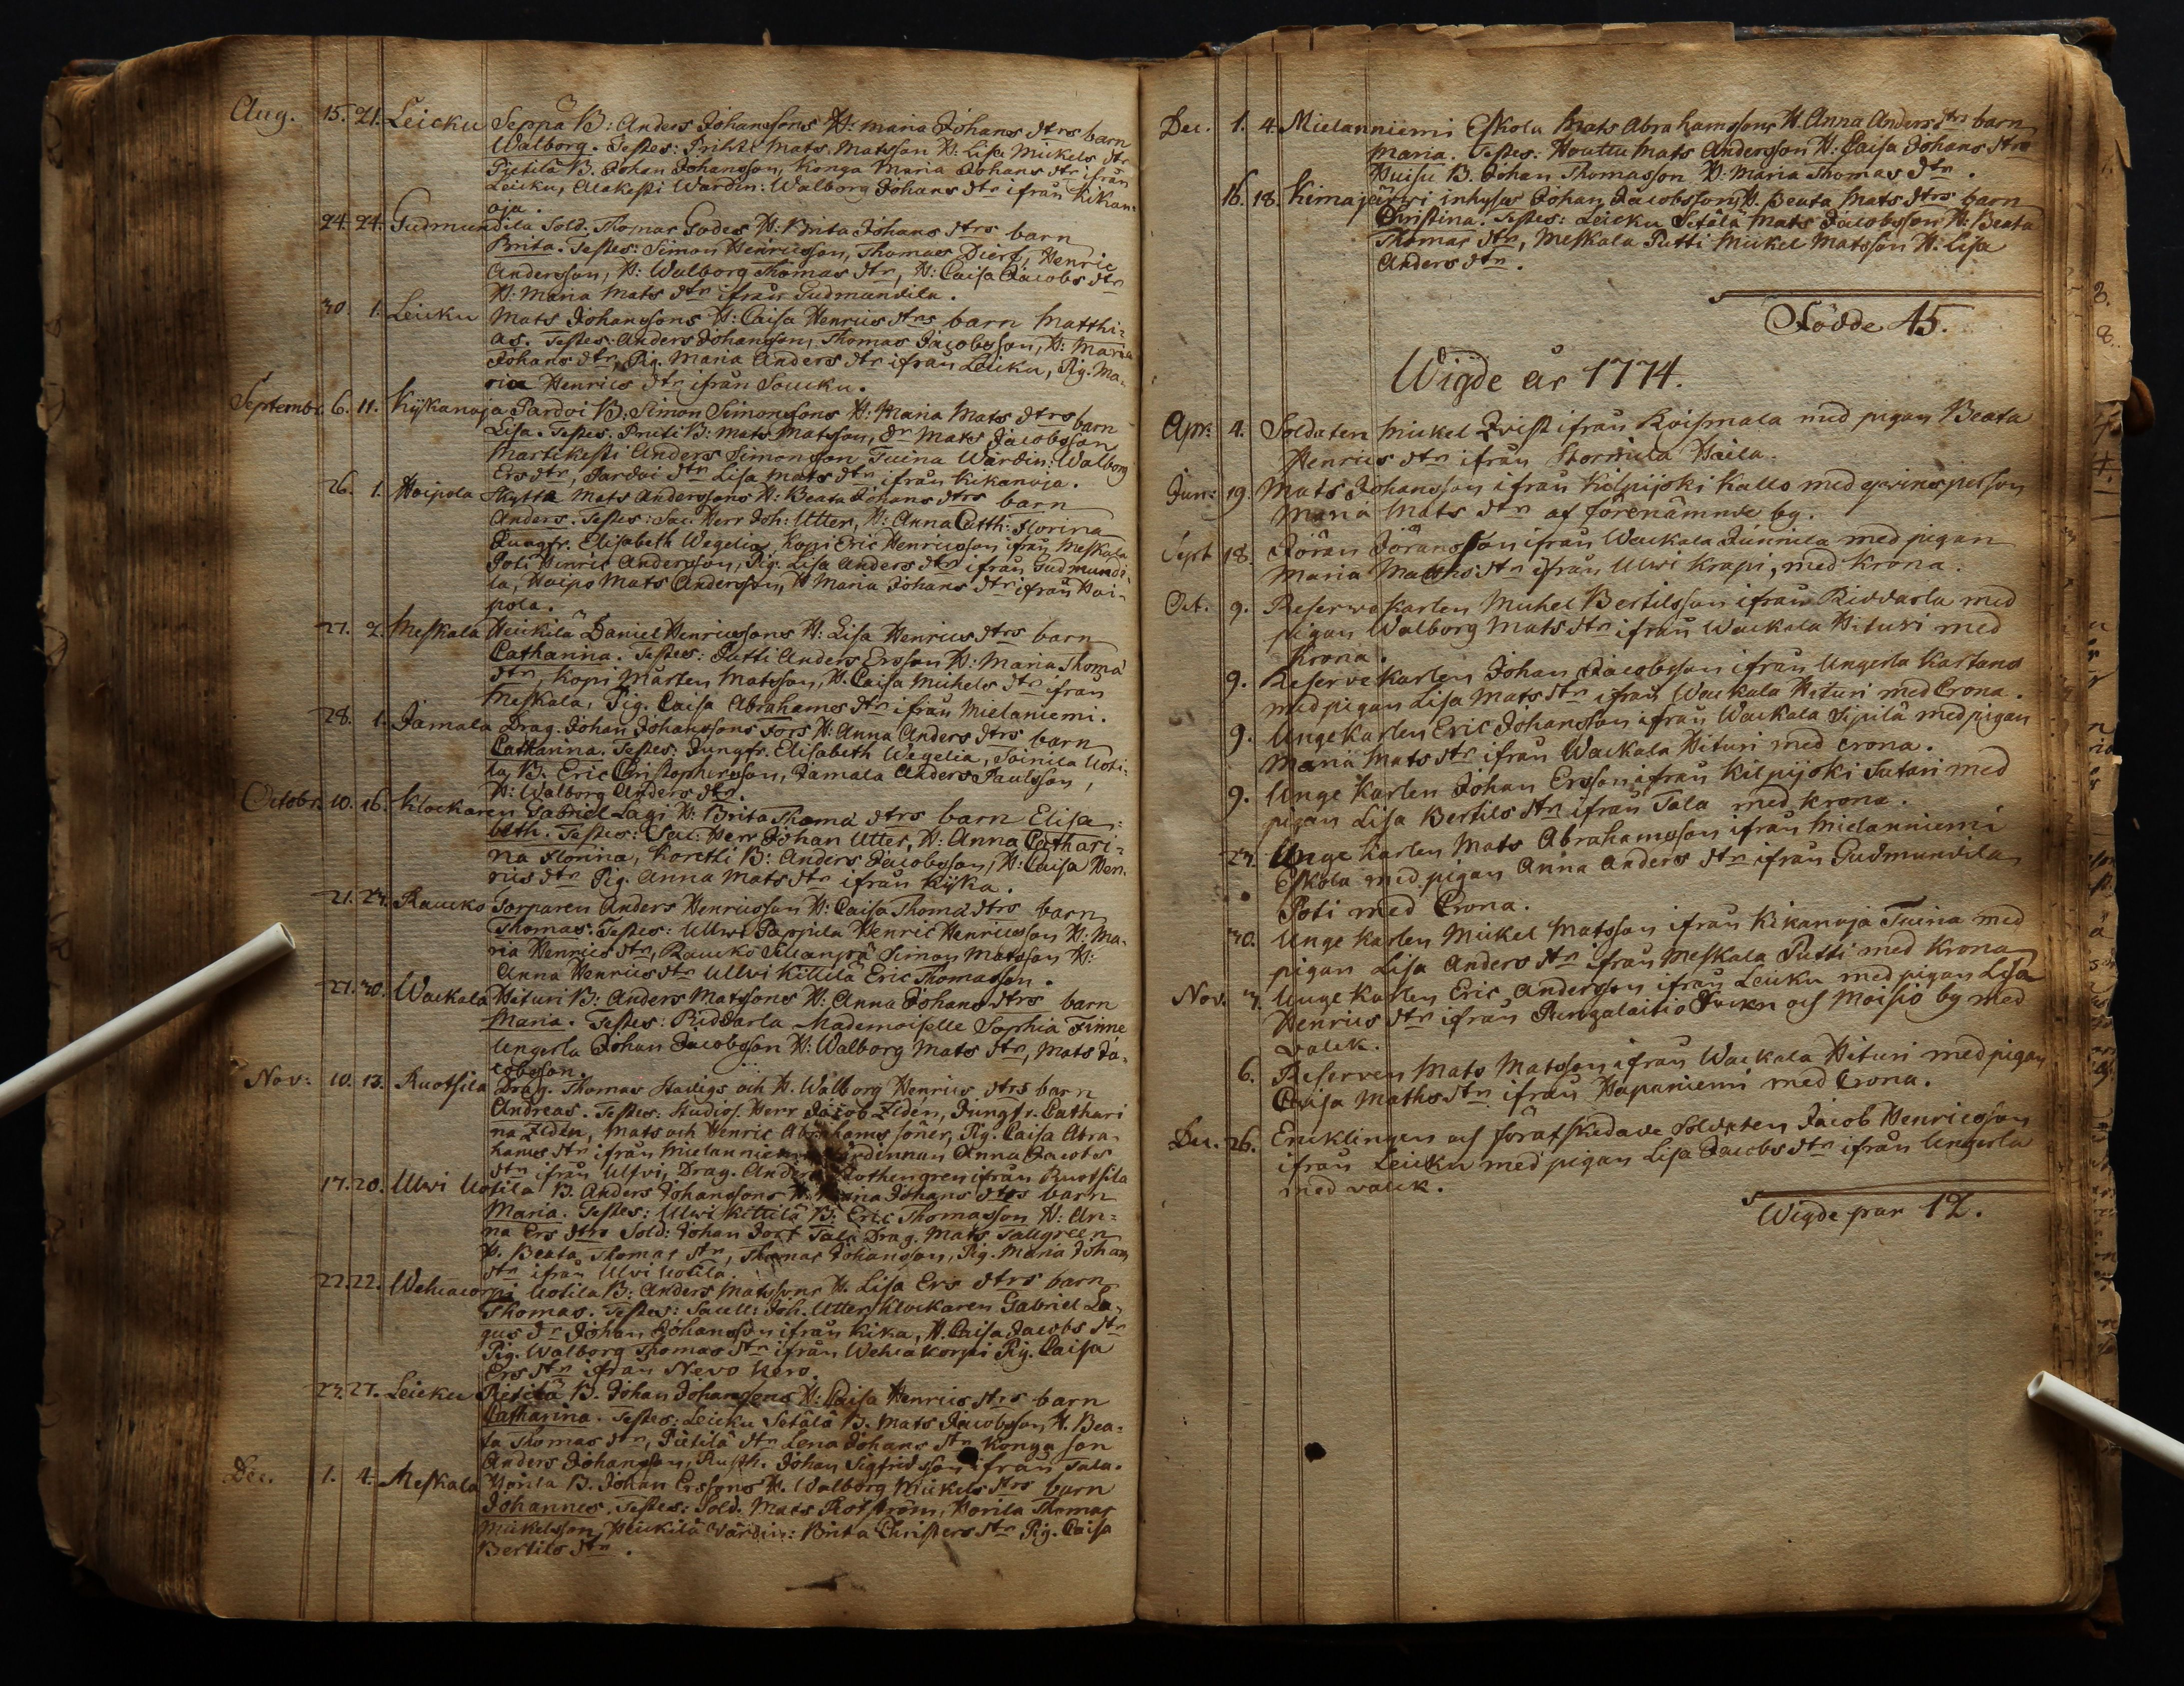 Aug. 15. 21. Leicku Seppä B: Anders Johanssons H: Maria Johans dtrs barn
Walborg. Testes: Mats Matsson H: Lisa Mickels dtr
Pietilä B. Johan Johansson, Konga Maria Johans dtr ifrån
Leicku, Alakesti Wärdin: Walborg Johans dtr ifrån Kikan=
oja.
24. 24. Gudmundila Sold. Thomas Godes H: Brita Johans dtrs barn
Brita. Testes: Simon Henricsson, Thomas Dierf, Henric
Andersson, H: Walborg Thomas dtr, H: Caisa Jacobs dtr
H: Maria Mats dtr ifrån Gudmundila.
30. 1. Leicku Mats Johanssons H: Caisa Henrics dtrs barn Matthi=
as. Testes: Anders Johansson, Thomas Jacobsson, H: Maria
Johans dtr, Pig. Maria Anders dtr ifrån Leicku, Pig. Ma=
ria Henrics dtr ifrån Soucku.
Septembr. 6. 11. Kijkanoja Pardoi B: Simon Simonssons H: Maria Mats dtrs barn
Lisa. Testes. Priiti B: Mats Matsson, dr Mats Jacobsson
Martikesti Anders Simonsson Tuina Wärdin: Walborg
Ers dtr, Pardoi dtr Lisa Mats dtr ifrån Kikanoja.
26. 1. Hoipola Skyttä Mats Anderssons H: Beata Johans dtrs barn
Anders. Testes: Sac. Herr Joh: Utter, H: Anna Cath: Florina
Jungfr. Elisabeth Wegelia, Kopi Eric Henricsson ifrån Meskala
Poti Henric Andersson, Pig. Lisa Anders dtr ifrån Gudmundi=
la, Hoipo Mats Andersson, H Maria Johans dtr ifrån Hoi=
pola.
27. 2. Meskala Heickilä Daniel Henricssons H: Lisa Henrics dtrs barn
Catharina. Testes: Putti Anders Ersson H: Maria Thoma
dtr, Kopi Mårten Matsson, H. Caisa Michels dtr ifrån
Meskala, Pig. Caisa Abrahams dtr ifrån Mielaniemi.
28. 1. Jamala Drag. Johan Johanssons Fors H: Anna Anders dtrs barn
Catharina. Testes: Jungfr. Elisabeth Wegelia, Soinila Uoti=
la, B. Eric Christophersson, Jamala Anders Paulsson,
H: Walborg Anders dtr.
Octobr. 10. 16. Klockaren Gabriel Lagi H: Brita Thoma dtrs barn Elisa=
beth. Testes: Sac. Herr Johan Utter, H: Anna Cathari=
na Florina, Koretti B: Anders Jacobsson, H: Caisa Hen=
rics dtr Pig. Anna Mats dtr ifrån Kijka.
21. 24. Raucko Torparen Anders Henricsson H: Caisa Thoma dtrs barn
Thomas. Testes: Ullwi Pappila Henric Henricsson H: Ma=
ria Henrics dtr, Raucko Simon Matsson H:
Anna Henrics dtr Ullvi Kittilä Eric Thomasson.
27. 30. Wackala Hituri B: Anders Matssons H: Anna Johans dtrs barn
Maria. Testes: Riddarla Mademoiselle Sophia Finne
Ungerla Johan Jacobsson H: Walborg Mats dtr, Mats Ja=
cobsson.
Nov: 10. 13. Ruotsila Drag. Thomas Hailigs och H. Walborg Henrics dtrs barn
Andreas. Testes: Studios. Herr Jacob Zidén, Jungfr. Cathari
na Zidén, Mats och Henric Abrahams söner, Pig. Caisa Abra=
hams dtr ifrån Mielanniemi Wärdinnan Anna Jacobs
dtr ifrån Ulfvi, Drag. Anders Rothengren ifrån Ruotsila
17. 20. Ulvi Uotila B. Anders Johanssons H: Maria Johans dtrs barn
Maria. Testes: Ulwi Kittilä B: Eric Thomasson H: An=
na Ers dtrs Sold: Johan Fort Tala Drag. Mats Tallgreen
H. Beata Thomas dtr, Thomas Johansson, Pig. Maria Johans
dtr ifrån Ulvi Uotila.
22. 22. Wehacorpi Uotila B: Anders Matssons H. Lisa Ers dtrs barn
Thomas. Testes: Sacell: Joh. Utter, Klockaren Gabriel La=
gus dr Johan Johansson ifrån Kika, H. Caisa Jacobs dtr
Pig. Walborg Thomas dtr ifrån Wehcakorpi Pig. Caisa
Ers dtr ifrån Nevo Nevo.
24. 27. Leicku Pietilä B. Johan Johanssons H: Caisa Henrics dtrs barn
Catharina. Testes: Leicku Setälä B. Mats Jacobsson, H. Bea=
ta Thomas dtr, Pietilä dtr Lena Johans dtr Konga son
Anders Johansson, Rusth. Johan Sigfridsson ifrån Tala.
Dec. 1. 4. Meskala Horila B. Johan Erssons H. Walborg Mickels dtrs barn
Johannes. Testes: Sold. Mats Rotström, Horila Thomas
Mickelsson, Heickilä Wärdin: Brita Christers dtr Pig. Caisa
Bertils dtr.
Dec. 1. 4. Mielanniemi Eskola Mats Abrahamssons H. Anna Anders dtrs barn
Maria. Testes: Houttu Mats Andersson H: Caisa Johans dtrs
Huisu B. Johan Thomasson H: Maria Thomas dtr.
16. 18. Kimajärwi inhyses Johan Jacobssons H. Beata Mats dtrs barn
Christina. Testes: Leicku Setälä Mats Jacobsson H: Beata
Thomas dtr, Meskala Putti Mickel Matsson H: Lisa
Anders dtr.
Födde 45.
Wigde år 1774.
Apr: 4. Soldaten Mickel Qvist ifrån Roismala med pigan Beata
Henrics dtr ifrån Haila.
Jun: 19. Mats Johansson ifrån Kilpijoki Kallo med qvinsperson
Maria Mats dtr af förenämnde by.
Sept. 18. Jöran Jöransson ifrån Wackala Junnila med pigan
Maria Matths dtr ifrån Ulwi Krapi, med Krona.
Oct. 9. Reservekarlen Michel Bertilsson ifrån Riddarla med
pigan Walborg Mats dtr ifrån Wackala Hituri med
Krona.
9. Reservekarlen Johan Jacobsson ifrån Ungerla Kartano
med pigan Lisa Mats dtr ifrån Wackala Hituri med Crona.
9. Unge Karlen Eric Johansson ifrån Wackala Sipilä med pigan
Maria Mats dtr ifrån Wackala Hituri med crona.
9. Unge Karlen Johan Ersson ifrån Kilpijoki Sutari med
pigan Lisa Bertils dtr ifrån Tala med krona.
27. Unge Karlen Mats Abrahamsson ifrån Mielanniemi
Eskola med pigan Anna Anders dtr ifrån Gudmundila
Poti med Crona.
30. Unge Karlen Mickel Matsson ifrån Kikanoja Tuina med
pigan Lisa Anders dtr ifrån Meskala Putti med Krona
Nov. Unge Karlen Eric Andersson ifrån Leicku med pigan Lisa
Henrics dtr ifrån Pungalaitio Socken och Moisio by med
valck.
6. Reserven Mats Matsson ifrån Wackala Hituri med pigan
Caisa Maths dtr ifrån Hapaniemi med Crona.
Dec. 26. Encklingen och förafskedade Soldaten Jacob Henricsson
ifrån Leicku med pigan Lisa Jacobs dtr ifrån Ungerla
med valck.
Wigde par 12.